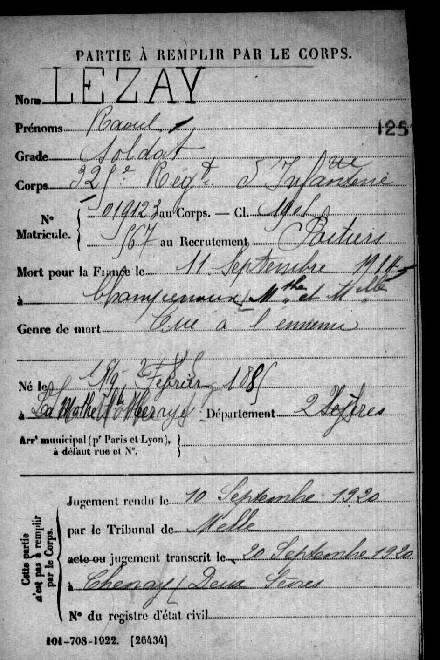 PARTIE À REMPLIR PAR LE CORPS.
Nom LEZAY
Prénoms Raoul
125
Grade Soldat
Corps 325e Régt d'Infanterie
N° Matricule. 019123 au Corps. — Cl. 1905
567 au Recrutement Poitiers
Mort pour la France le 11 Septembre 1914
à Champenoux (Mthe et Mlle)
Genre de mort Tué à l'ennemi
Né le Février 1885
à La Mothe St Héraye Département 2 Sèvres
Arrt municipal (pr Paris et Lyon),
à défaut rue et N°.
Cette partie n'est pas à remplir par le Corps.
Jugement rendu le 10 Septembre 1920
par le Tribunal de Melle
acte ou jugement transcrit le 20 Septembre 1920
à Chenay (Deux Sèvres
N° du registre d'état civil
101-708-1922. [26434]